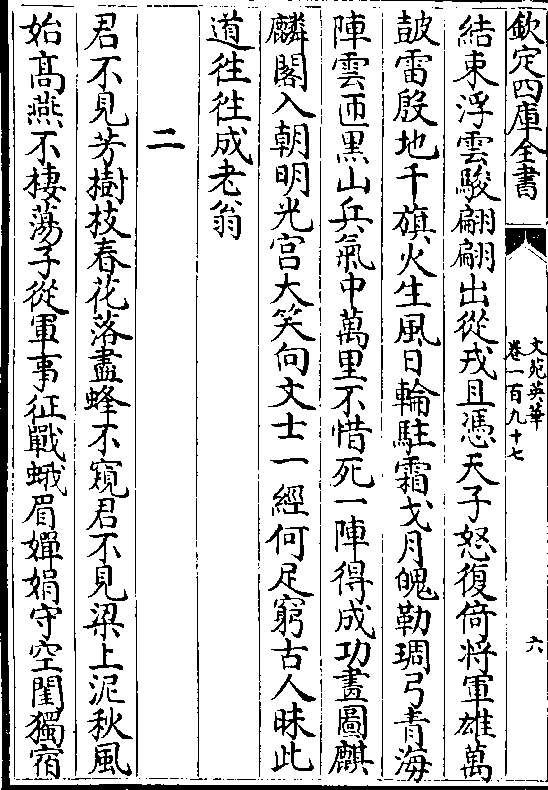 欽定四庫全書
文苑英華
卷一百九十七
六
結束浮雲駿翩翩出從戎且憑天子怒復倚將軍雄萬
鼔雷殷地千旗火生風日輪駐霜戈月魄勒琱弓青海
陣雲匝黒山兵氣中萬里不惜死一陣得成功畫圖麒
麟閣入朝明光宫大笑向文士一經何足窮古人昧此
道往往成老翁
二
君不見芳樹枝春花落盡蜂不窺君不見梁上泥秋風
始髙燕不棲蕩子從軍事征戰蛾眉嬋娟守空閨獨宿